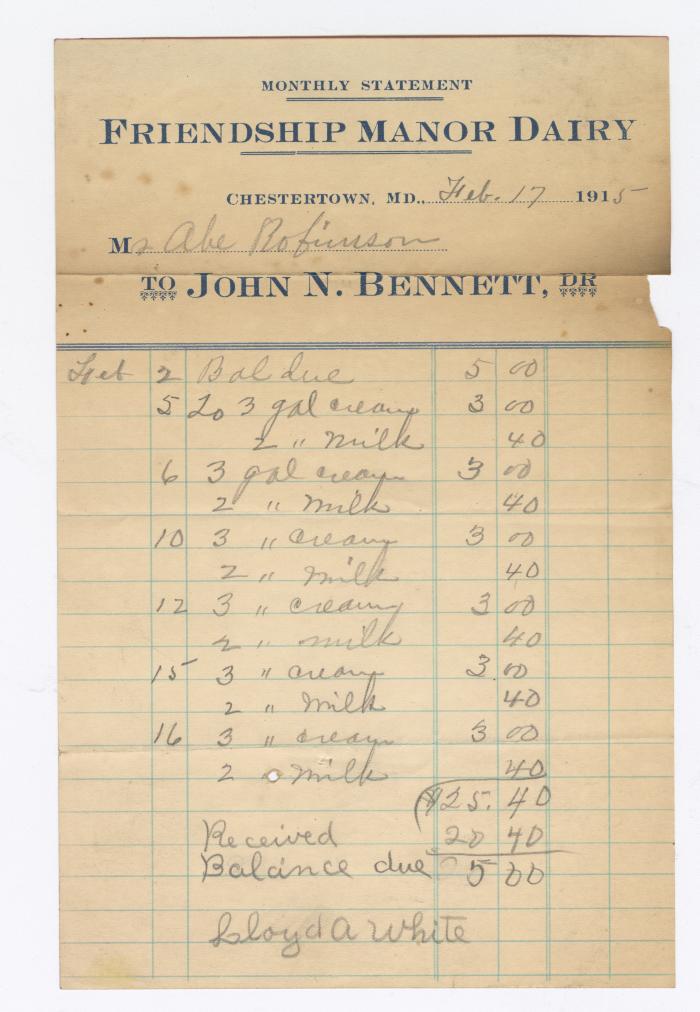 MONTHLY STATEMENT
FRIENDSHIP MANOR DAIRY
CHESTERTOWN, MD., Feb. 17 1915
Mr Abe Robinson
TO JOHN N. BENNETT, DR
Feb 2 Bal due 5 00
5 To 3 gal cream 3 00
2 " Milk 40
6 3 gal cream 3 00
2 " Milk 40
10 3 " cream 3 00
2 " Milk 40
12 3 " cream 3 00
2 " milk 40
15 3 " cream 3 00
2 " Milk 40
16 3 " cream 3 00
2 Milk 40
$25.40
Received 20 40
Balance due 5 00
Lloyd A White